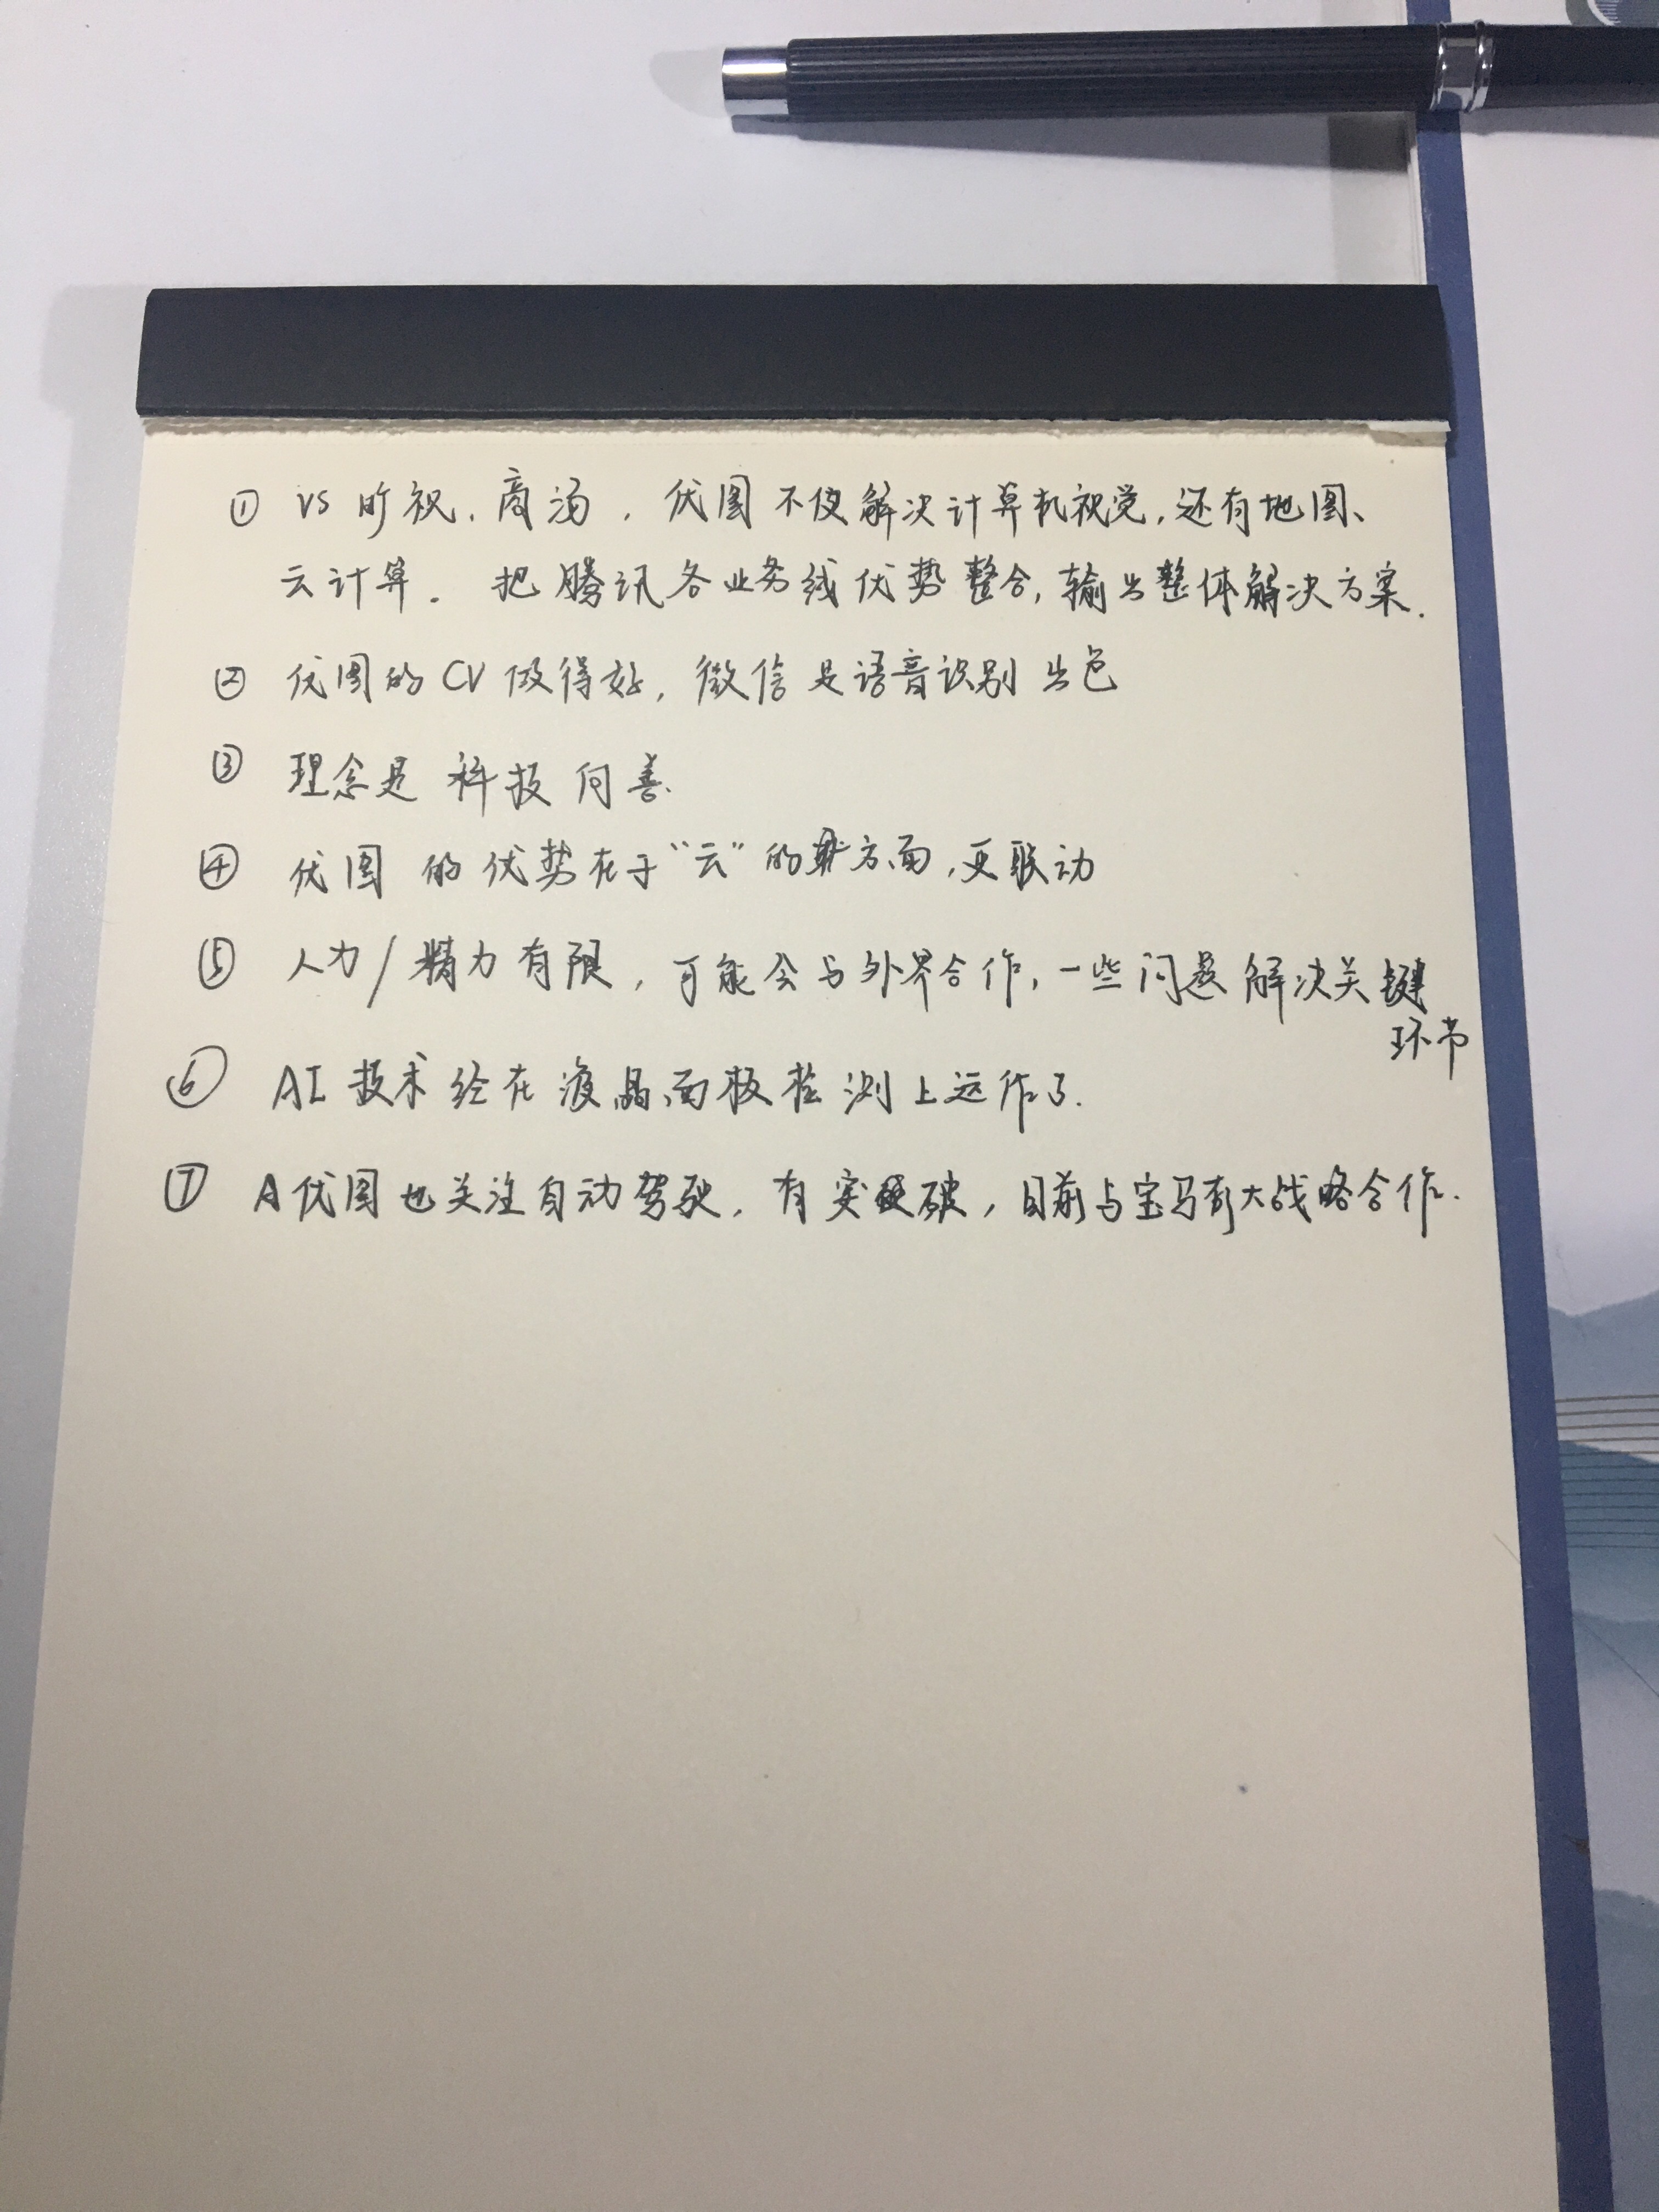 ① vs 旷视、商汤，优图不仅解决计算机视觉，还有地图、
云计算．把腾讯各业务线优势整合，输出整体解决方案．
② 优图的CV做得好，微信是语音识别出色
③ 理念是科技向善．
④ 优图的优势在于“云”的方面，更联动
⑤ 人力/精力有限，可能会与外界合作，一些问题解决关键
环节
⑥ AI技术经在液晶面板检测上运作了．
⑦ 优图也关注自动驾驶，有突破，目前与宝马有大战略合作．